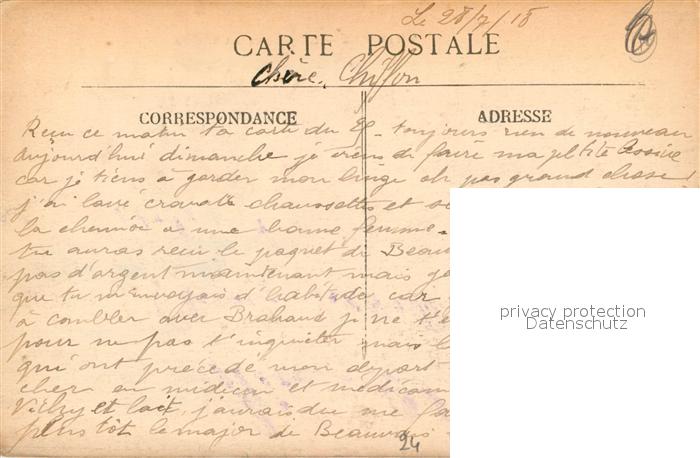 Le 28/7/18
CARTE POSTALE
Chère Chiffon
CORRESPONDANCE
ADRESSE
Reçu ce matin ta carte du 25 - toujours rien de nouveau
aujourd'hui dimanche je viens de faire ma petite lessive
car je tiens à garder mon linge oh pas grand chose
j'ai lavé cravate chaussettes et
la chemise a une bonne femme -
tu auras reçu le paquet de Beauv
pas d'argent maintenant mais je
que tu m'envoyais d'habitude car
à combler avec Brahaud je ne t'
pour ne pas t'inquiéter mais l
qui ont précédé mon départ
cher en médecin et médicam
Vichy et lait, j'aurais du me fa
plus tôt le major de Beauvais
24
privacy protection
Datenschutz